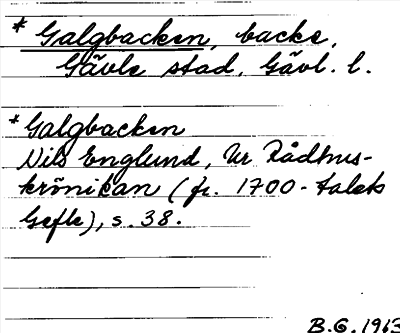 * Galgbacken, backe,
Gävle stad, Gävl. l.
* Galgbacken
Nils Englund, Ur Rådhus-
krönikan (fr. 1700-talets
Gefle), s. 38.
B.G. 1963